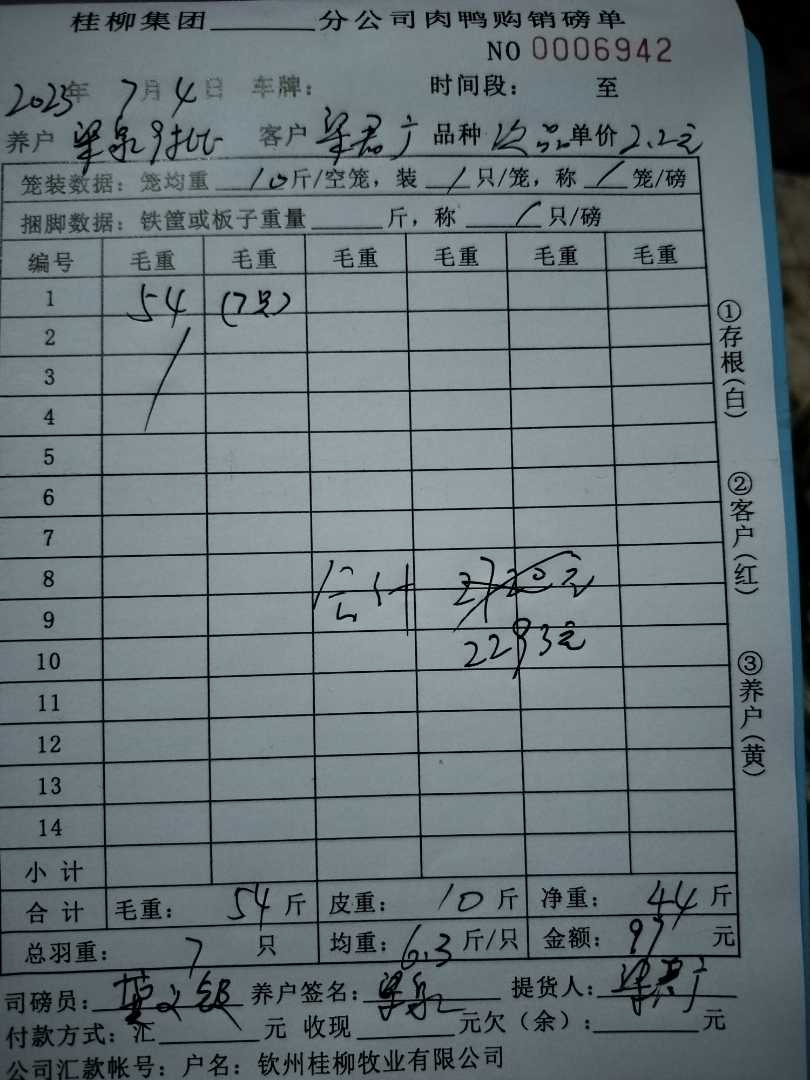 桂柳集团______分公司肉鸭购销磅单
NO 0006942
2023年 7月4日 车牌: 时间段: 至
养户 梁泉9批 客户 梁君广 品种 次品 单价 2.2元
笼装数据: 笼均重 10斤/空笼, 装 / 只/笼, 称 / 笼/磅
捆脚数据: 铁筐或板子重量______斤, 称 / 只/磅
编号 毛重 毛重 毛重 毛重 毛重 毛重
1 54 (7只)
2
3
4
5
6
7
8 合计
9
10 2293元
11
12
13
14
小计
合计 毛重: 54斤 皮重: 10斤 净重: 44斤
总羽重: 7只 均重: 6.3斤/只 金额: 97元
司磅员: 养户签名: 梁泉 提货人: 梁君广
付款方式: 汇______元 收现______元欠(余):______元
公司汇款帐号: 户名: 钦州桂柳牧业有限公司
①存根(白)
②客户(红)
③养户(黄)